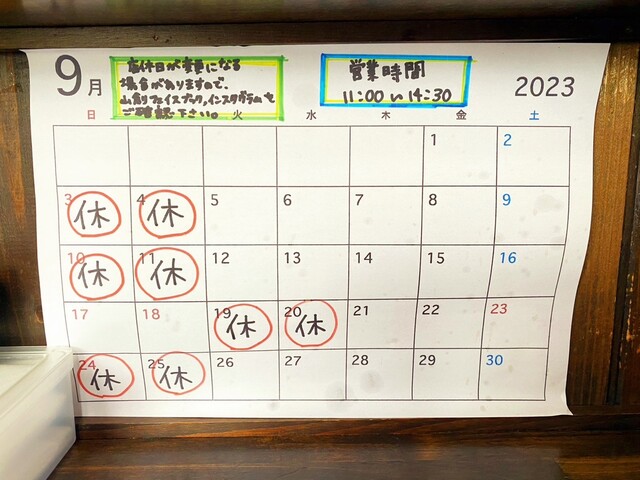 9月
店休日が変更になる
場合がありますので、
フェイスブック、インスタグラムを
ご確認下さい。
営業時間
11:00〜14:30
2023
日 火 水 木 金 土
1 2
3 休 4 休 5 6 7 8 9
10 休 11 休 12 13 14 15 16
17 18 19 休 20 休 21 22 23
24 休 25 休 26 27 28 29 30